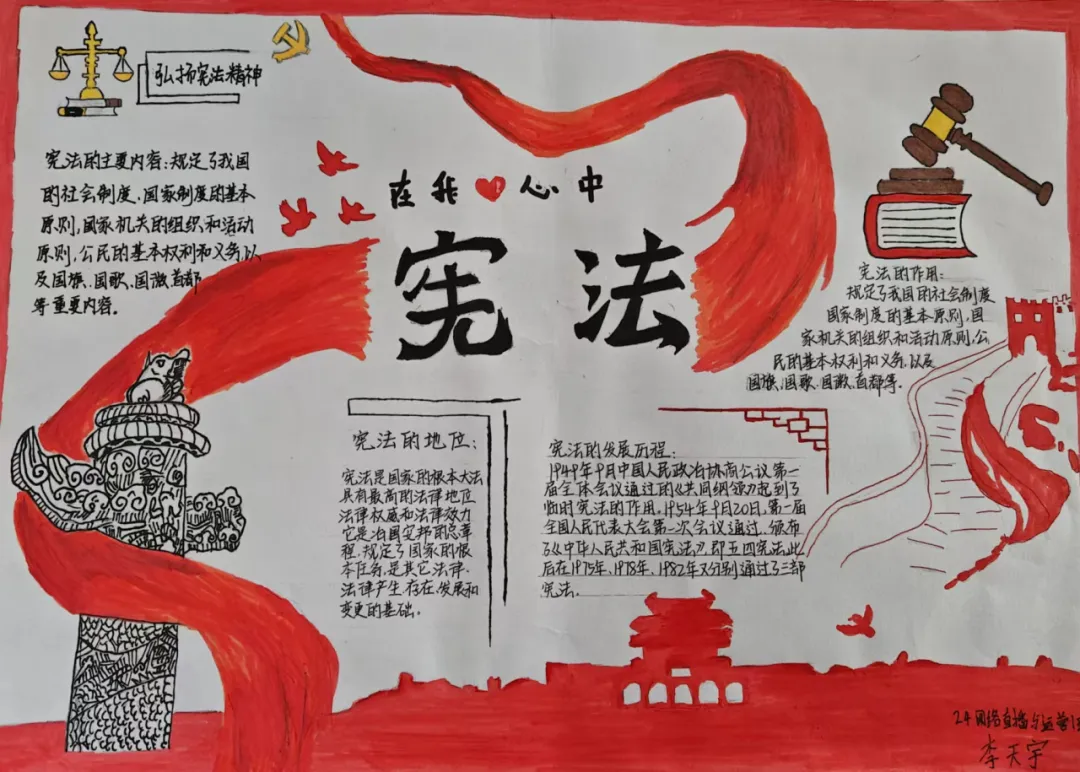 弘扬宪法精神
宪法的主要内容:规定了我国
的社会制度、国家制度的基本
原则,国家机关的组织和活动
原则,公民的基本权利和义务,以
及国旗、国歌、国徽、首都
等重要内容。
在我心中
宪法
宪法的作用:
规定了我国的社会制度
国家制度的基本原则,国
家机关的组织和活动原则,公
民的基本权利和义务,以及
国旗、国歌、国徽、首都等。
宪法的地位:
宪法是国家的根本大法
具有最高的法律地位
法律权威和法律效力
它是治国安邦的总章
程,规定了国家的根
本任务,是其它法律、
法律产生、存在、发展和
变更的基础。
宪法的发展历程:
1949年9月中国人民政治协商会议第一
届全体会议通过的《共同纲领》起到了
临时宪法的作用,1954年9月20日,第一届
全国人民代表大会第一次会议通过,颁布
了《中华人民共和国宪法》,即五四宪法,此
后在1975年、1978年、1982年又分别通过了三部
宪法。
24网络直播与运营
李天宇